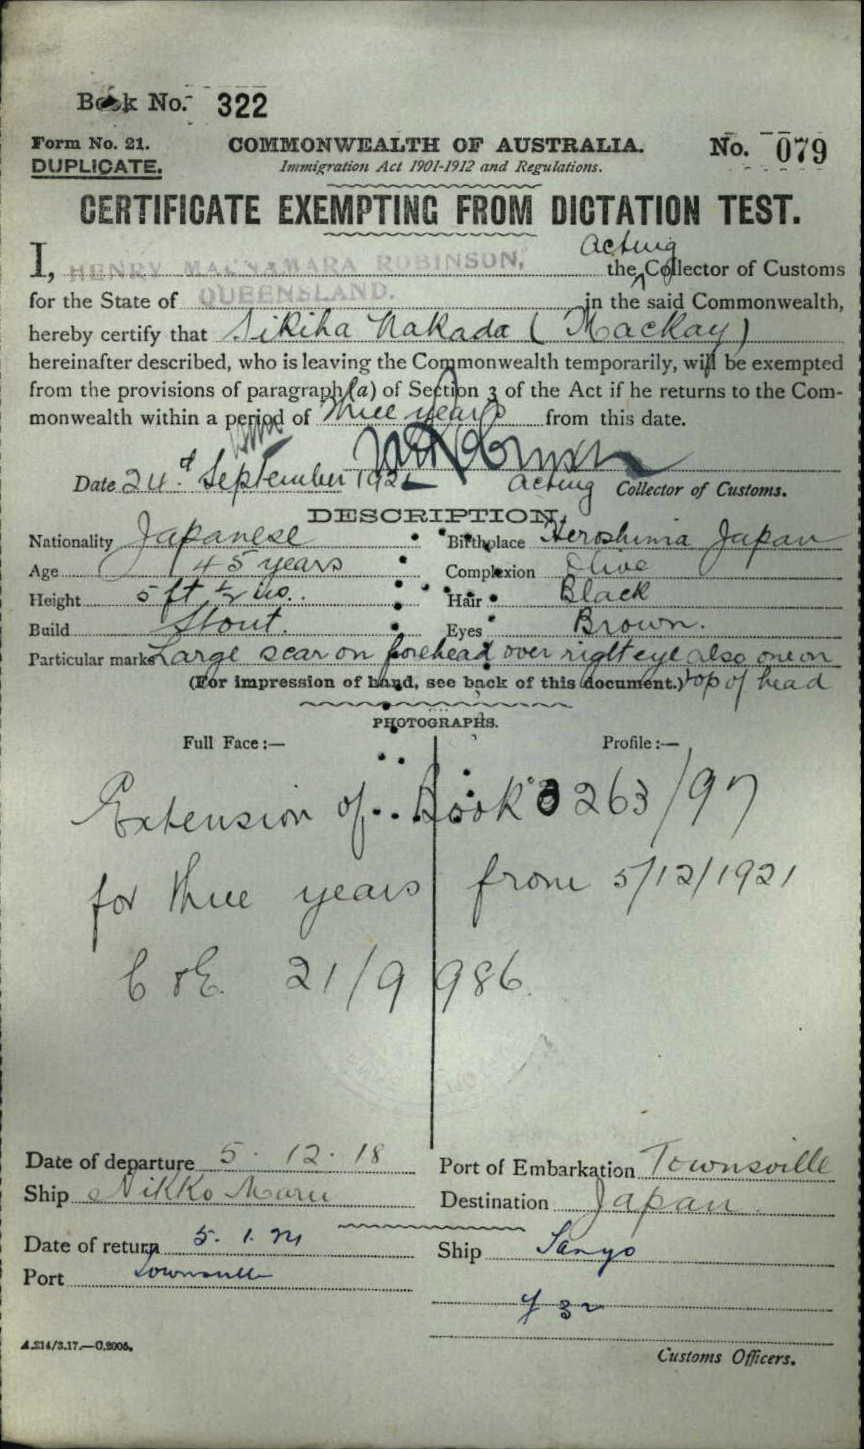 Book No. 322
Form No. 21.
DUPLICATE.
COMMONWEALTH OF AUSTRALIA.
Immigration Act 1901-1912 and Regulations.
No. 079
CERTIFICATE EXEMPTING FROM DICTATION TEST.
Acting
I, HENRY MACNAMARA ROBINSON, the Collector of Customs
for the State of QUEENSLAND. in the said Commonwealth,
hereby certify that Sikiha Nakada (Mackay)
hereinafter described, who is leaving the Commonwealth temporarily, will be exempted
from the provisions of paragraph (a) of Section 3 of the Act if he returns to the Com-
monwealth within a period of three years from this date.
Date 24th September 1921 Acting Collector of Customs.
DESCRIPTION.
Nationality Japanese Birthplace Heroshima Japan
Age 45 years Complexion Olive
Height 5 ft ½ ins. Hair Black
Build Stout. Eyes Brown.
Particular marks Large scar on forehead over right eye also one on
(For impression of hand, see back of this document.) top of head
PHOTOGRAPHS.
Full Face:— Profile:—
Extension of Book 263/97
for three years from 5/12/1921
C & E. 21/9986.
Date of departure 5.12.18 Port of Embarkation Townsville
Ship Nikko Maru Destination Japan.
Date of return 5.1.24 Ship Tanyo
Port Townsville
A.214/3.17.—C.2006.
Customs Officers.